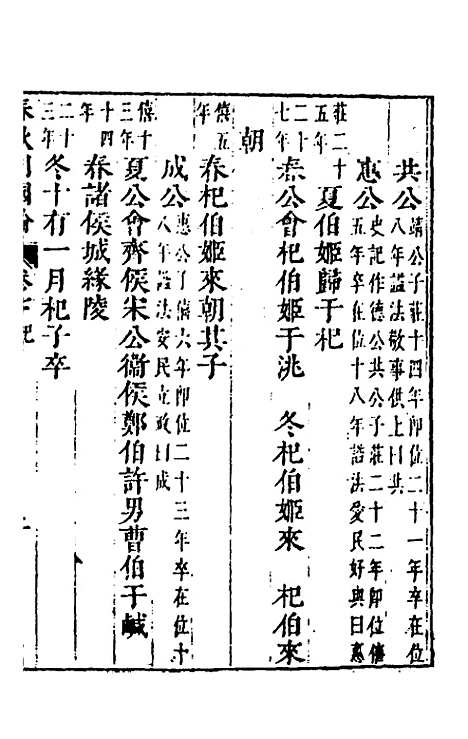 共公靖公子莊十四年即位二十一年卒在位
八年諡法敬事供上曰共
惠公史記作德公共公子莊二十二年即位僖
五年卒在位十八年諡法愛民好與曰惠
莊二十五年 夏伯姬歸于杞
二十七年 春公會杞伯姬于洮 冬杞伯姬來 杞伯來
朝
僖五年 春杞伯姬來朝其子
成公惠公子僖六年即位二十三年卒在位十
八年諡法安民立政曰成
僖十三年 夏公會齊侯宋公衛侯鄭伯許男曹伯于鹹
十四年 春諸侯城緣陵
二十三年 冬十有一月杞子卒
春秋列國論 卷 杞